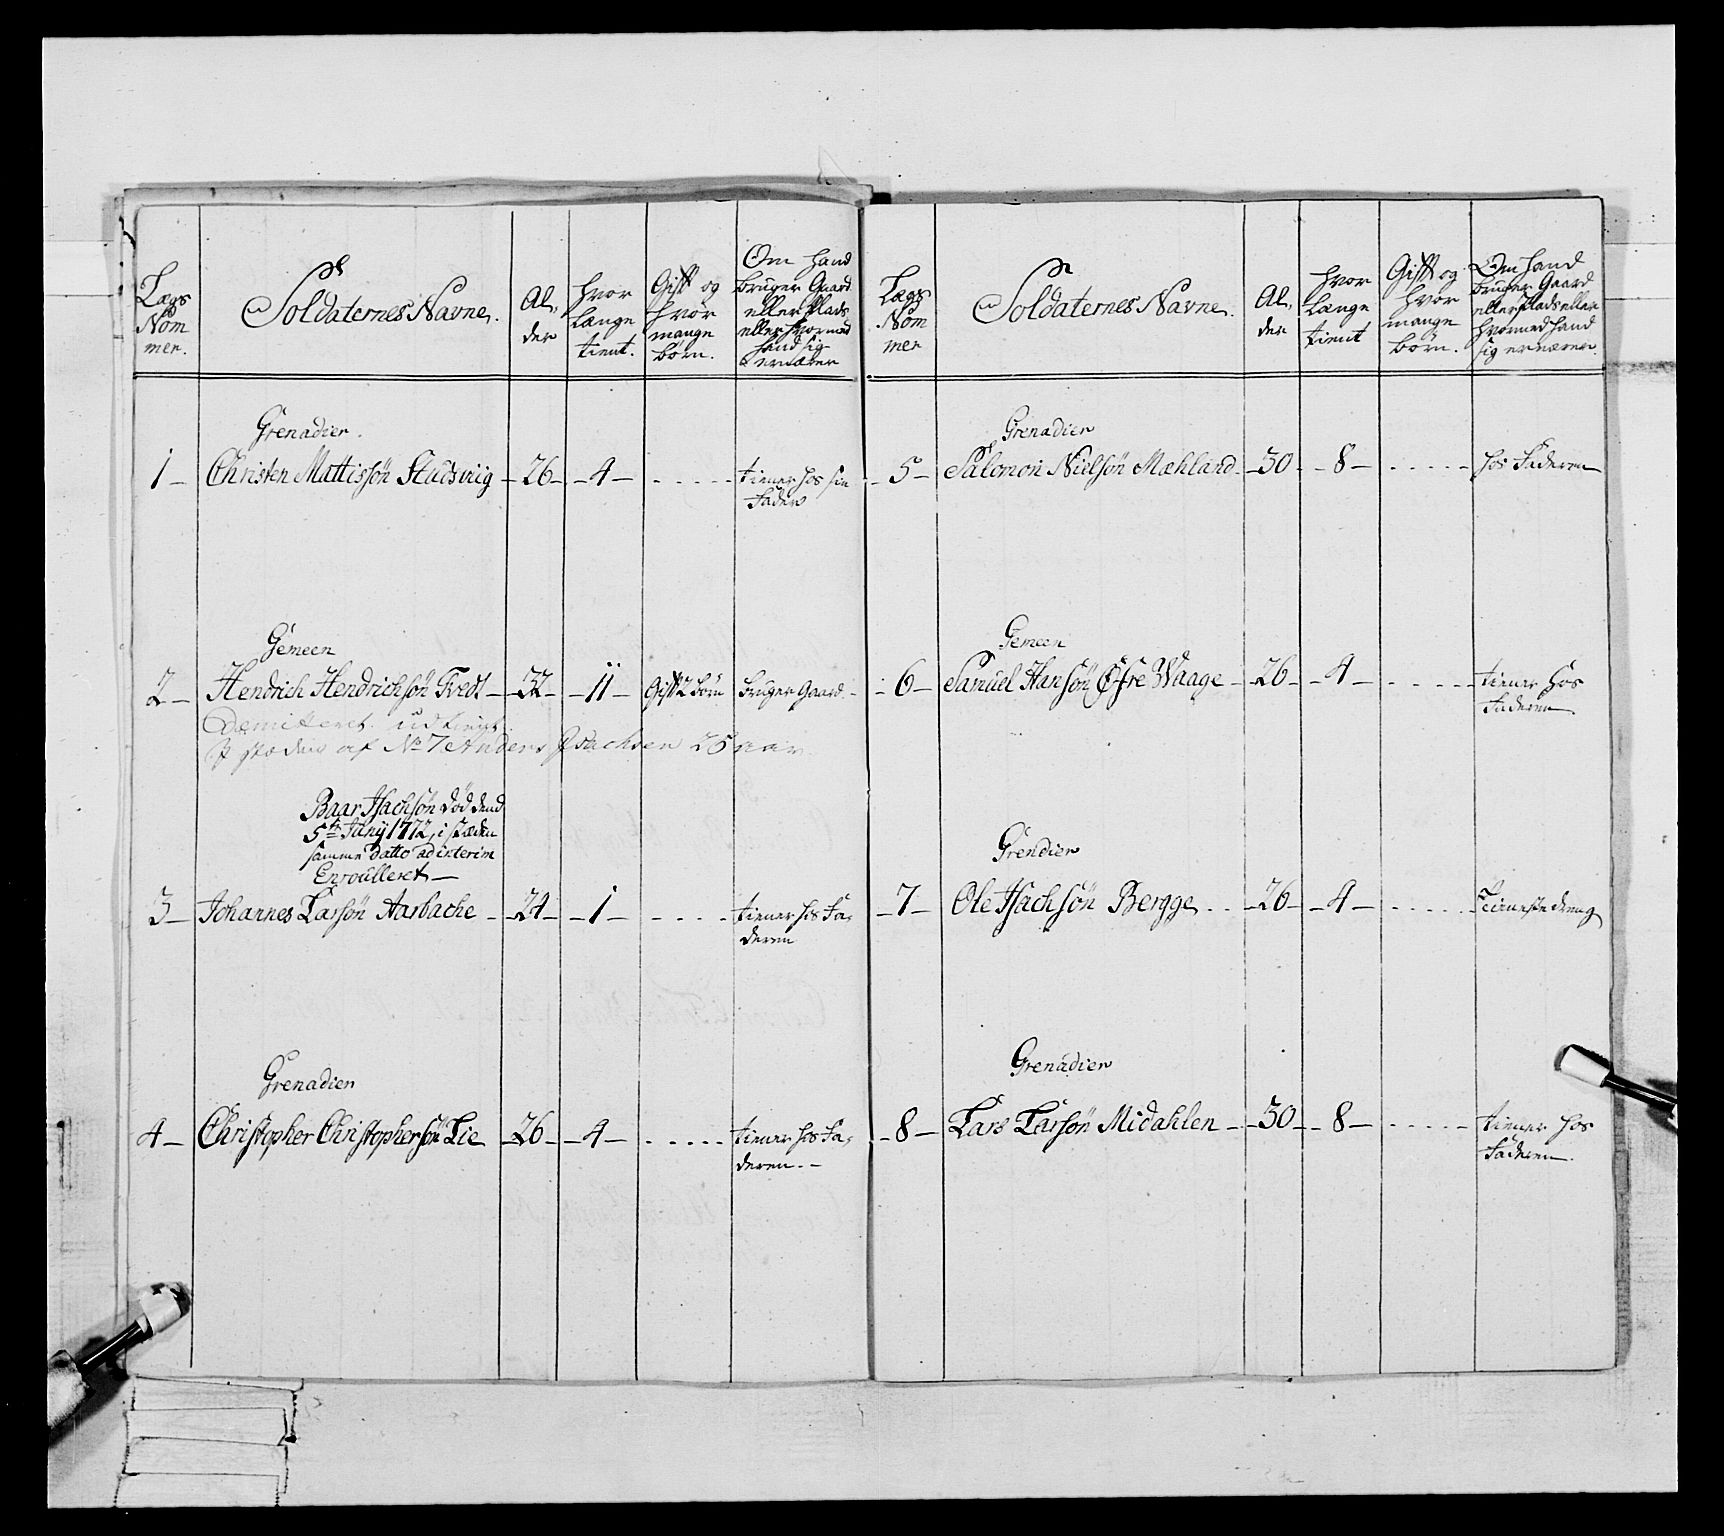 Lægs
Nom
mer.
Soldaternes Navne.
Al,
der
hvor
længe
tient.
Gift og
hvor
mange
börn.
Om hand
bruger Gaard
eller Plads
eller hvormed
hand sig
ernærer
Grenadier.
1 Christen Mattissön Studsviig - 26 - - 4 - . . . . . tiener hos sin
Fader
Gemeen
2 - Hendrich Hendrichsön Tvedt - 32 - - 11 - Gift 2 börn bruger Gaard -
Demitteret
I stæden af No 7 Anders Isachsen 25 aar.
Baar Isachsön död dend
5te Junij 1772, i stæden
samme datto ad interim
Enroulleret -
3 - Johannes Larsön Aasbache - 24 - - 1 - . . . . . tiener hos Fa,
deren
Grenadier
4 - Christopher Christophersön Lie - 26 - - 4 - . . . . . tiener hos Fa,
deren. -
Lægs
Nom
mer
Soldaternes Navne.
Al,
der
hvor
længe
tient
Gift og
hvor
mange
börn.
Om hand
bruger Gaard
eller Plads eller
hvormed hand
sig ernærer.
Grenadier
- 5 - Salomon Nielsön Mæhland - 30 - - 8 - . . . . . hos Faderen
Gemeen
- 6 - Samuel Hansön Öfre Waage - 26 - - 4 - . . . . . tiener hos
Faderen
Grendier
- 7 - Ole Isachsön Bergge . . - 26 - - 4 - . . . . . Tieneste dreng
Grenadier
- 8 - Lars Larsön Midahlen - 30 - - 8 - . . . . . tiener hos
Faderen.